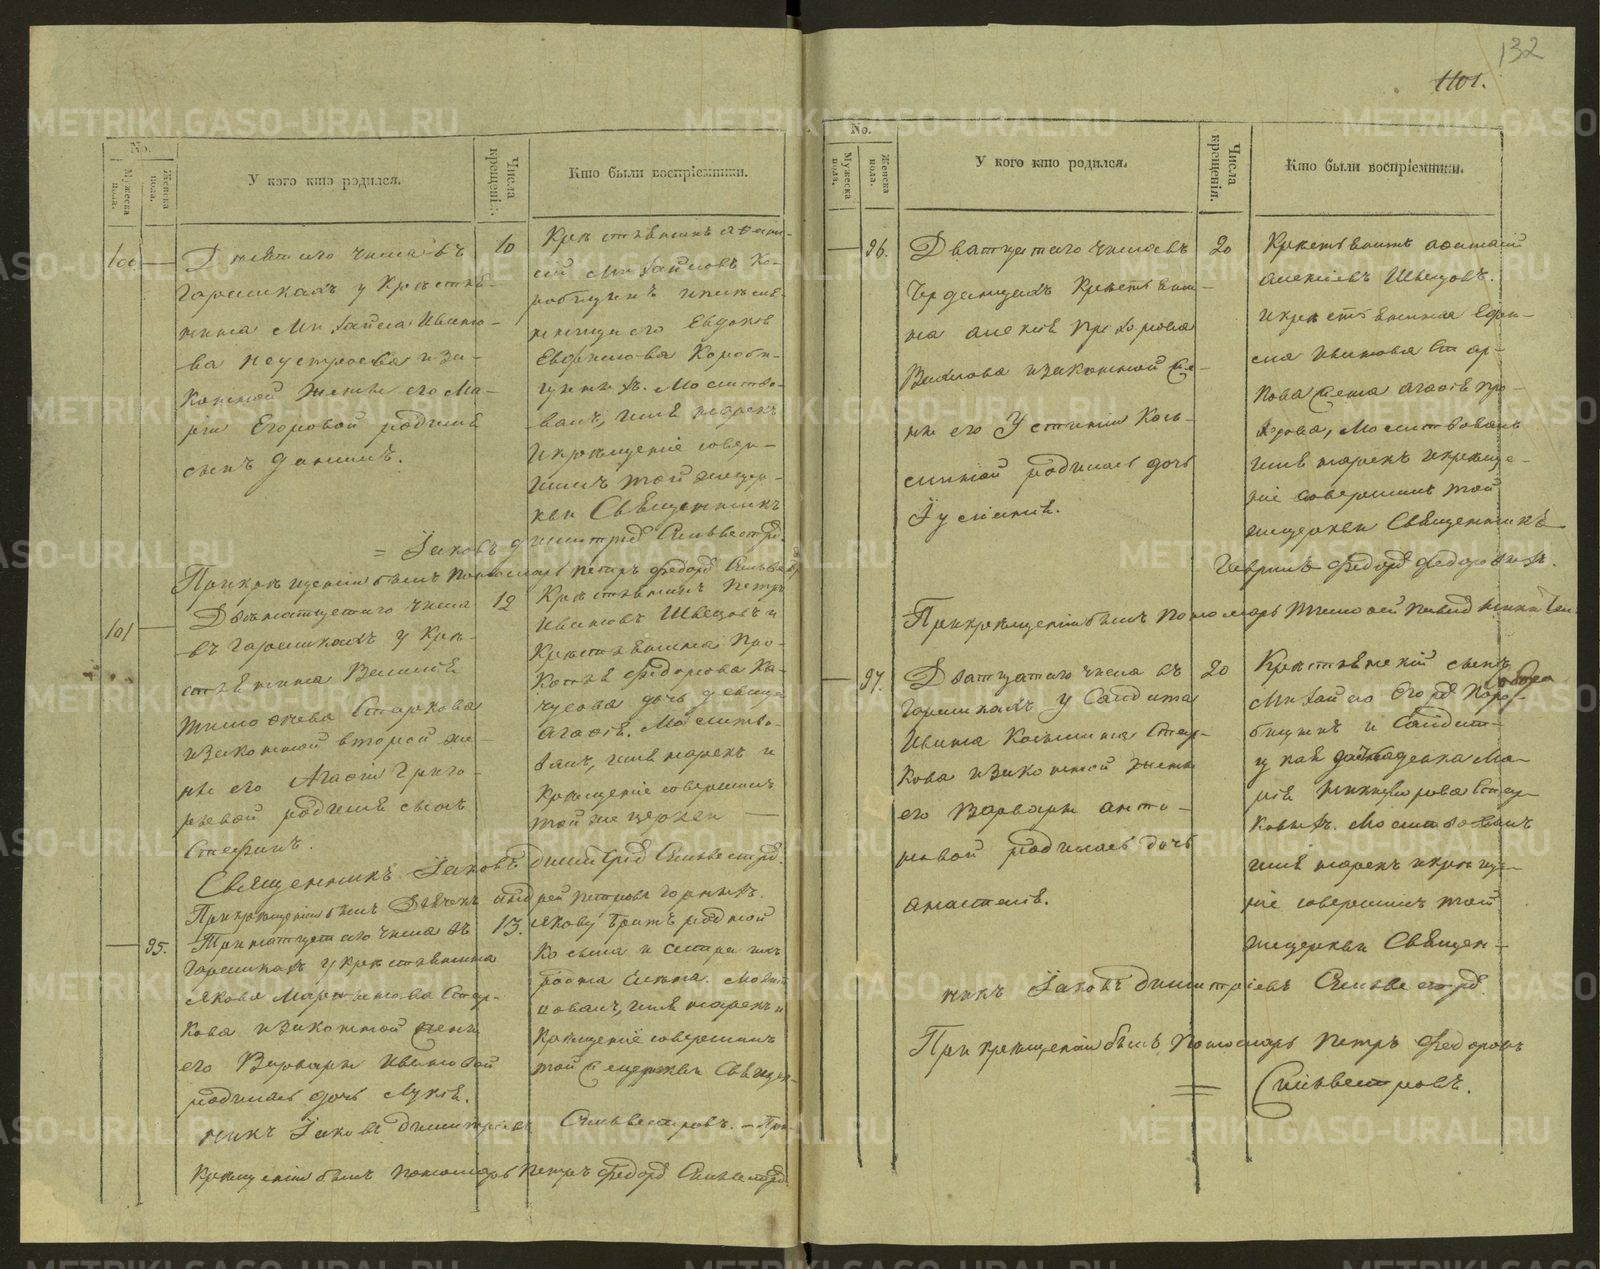 132
1101.
No.
Мужеска пола.
Женска пола.
У кого кто родился.
Числа крещенія.
Кто были воспріемники.
100
Девятаго числа въ
Гарашкахъ у Крестья-
нина Михайла Ивано-
ва и за-
конной жены его Ма-
ріи Егоровой родился
сынъ Даніилъ.
10
Михайловъ Ко-
его Евдокія
Молитво-
валъ, имя нарекъ
и крещеніе совер-
шилъ той же цер-
кви Священникъ
= Іаковъ Димитріевъ Сильвестровъ.
При крещеніи былъ Пономарь Петръ Федоровъ Сильвестровъ
101
Двенатцетаго числа
въ Гарашкахъ у Кре-
стьянина Василія
Тимофеева Старкова
и законной второй же-
ны его Агафіи Григо-
рьевой родился сынъ
Стефанъ.
12
Крестьянинъ Петръ
Ивановъ Швецовъ и
Крестьянина Про-
копья Федорова Ка-
чусова дочь девица
Агафія. Молитво-
валъ, имя нарекъ и
крещеніе совершилъ
той же церкви
Священникъ Іаковъ Димитріевъ Сильвестровъ.
При крещеніи былъ Дьячекъ Андрей Петровъ Горныхъ.
95.
Тринатцетаго числа въ
Гарашкахъ у Крестьянина
Якова Мартынова Стар-
кова и законной жены
его Варвары Ивановой
родилась дочь Лукія.
13.
Якову братъ родной
Косьма и сестра их
родна Елена. Молит-
вовалъ, имя нарекъ и
крещеніе совершилъ
той же церкви Священ-
никъ Іаковъ Димитріевъ Сильвестровъ. – При
крещеніи былъ пономарь Петръ Федоровъ Сильвестровъ
No.
Мужеска пола.
Женска пола.
У кого кто родился.
Числа крещенія.
Кто были воспріемники.
96.
Дватцетаго числа въ
Черданцахъ Крестьяни-
на Алексія Прохорова
и законной же-
ны его Устиніи Кось-
миной родилась дочь
Іуліанія.
20
Крестьянинъ
Алексіевъ Швецовъ.
и крестьянина Ефи-
ма Иванова Стар-
кова жена Агафія Про-
хорова, Молитвовалъ
имя нарекъ и креще-
ніе совершилъ той
же церкви Священникъ
Гавріилъ Федоровъ
При крещеніи былъ пономарь Тимофей
97.
Дватцатаго числа въ
Гарашкахъ у Солдата
Ивана Косьмина Стар-
кова и законной жены
его Варвары Анто-
новой родилась дочь
Анастасія.
20
Крестьянскій сынъ
Михайло Егоровъ Коро-
бицынъ и Солдат-
ская девка Ма-
рія Никифорова Стар-
ковыхъ. Молитвовалъ
имя нарекъ и креще-
ніе совершилъ той
же церкви Священ-
никъ Іаковъ Димитріевъ Сильвестровъ.
При крещеніи былъ Пономарь Петръ Федоровъ
Сильвестровъ.